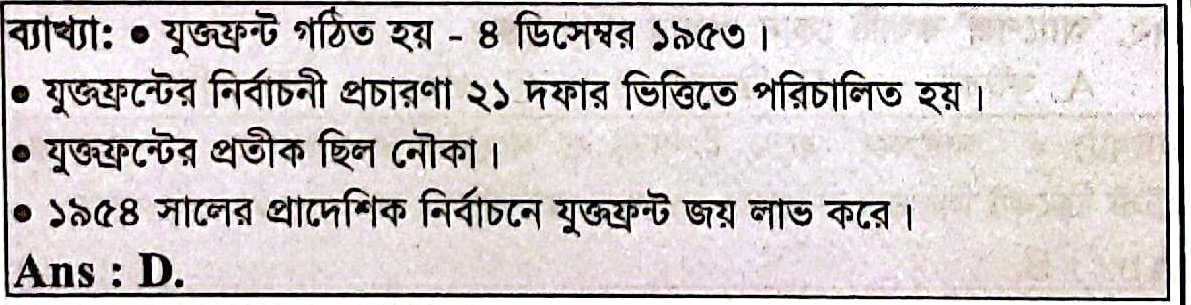 ব্যাখ্যা: ● যুক্তফ্রন্ট গঠিত হয় - ৪ ডিসেম্বর ১৯৫৩।
● যুক্তফ্রন্টের নির্বাচনী প্রচারণা ২১ দফার ভিত্তিতে পরিচালিত হয়।
● যুক্তফ্রন্টের প্রতীক ছিল নৌকা।
● ১৯৫৪ সালের প্রাদেশিক নির্বাচনে যুক্তফ্রন্ট জয় লাভ করে।
Ans : D.